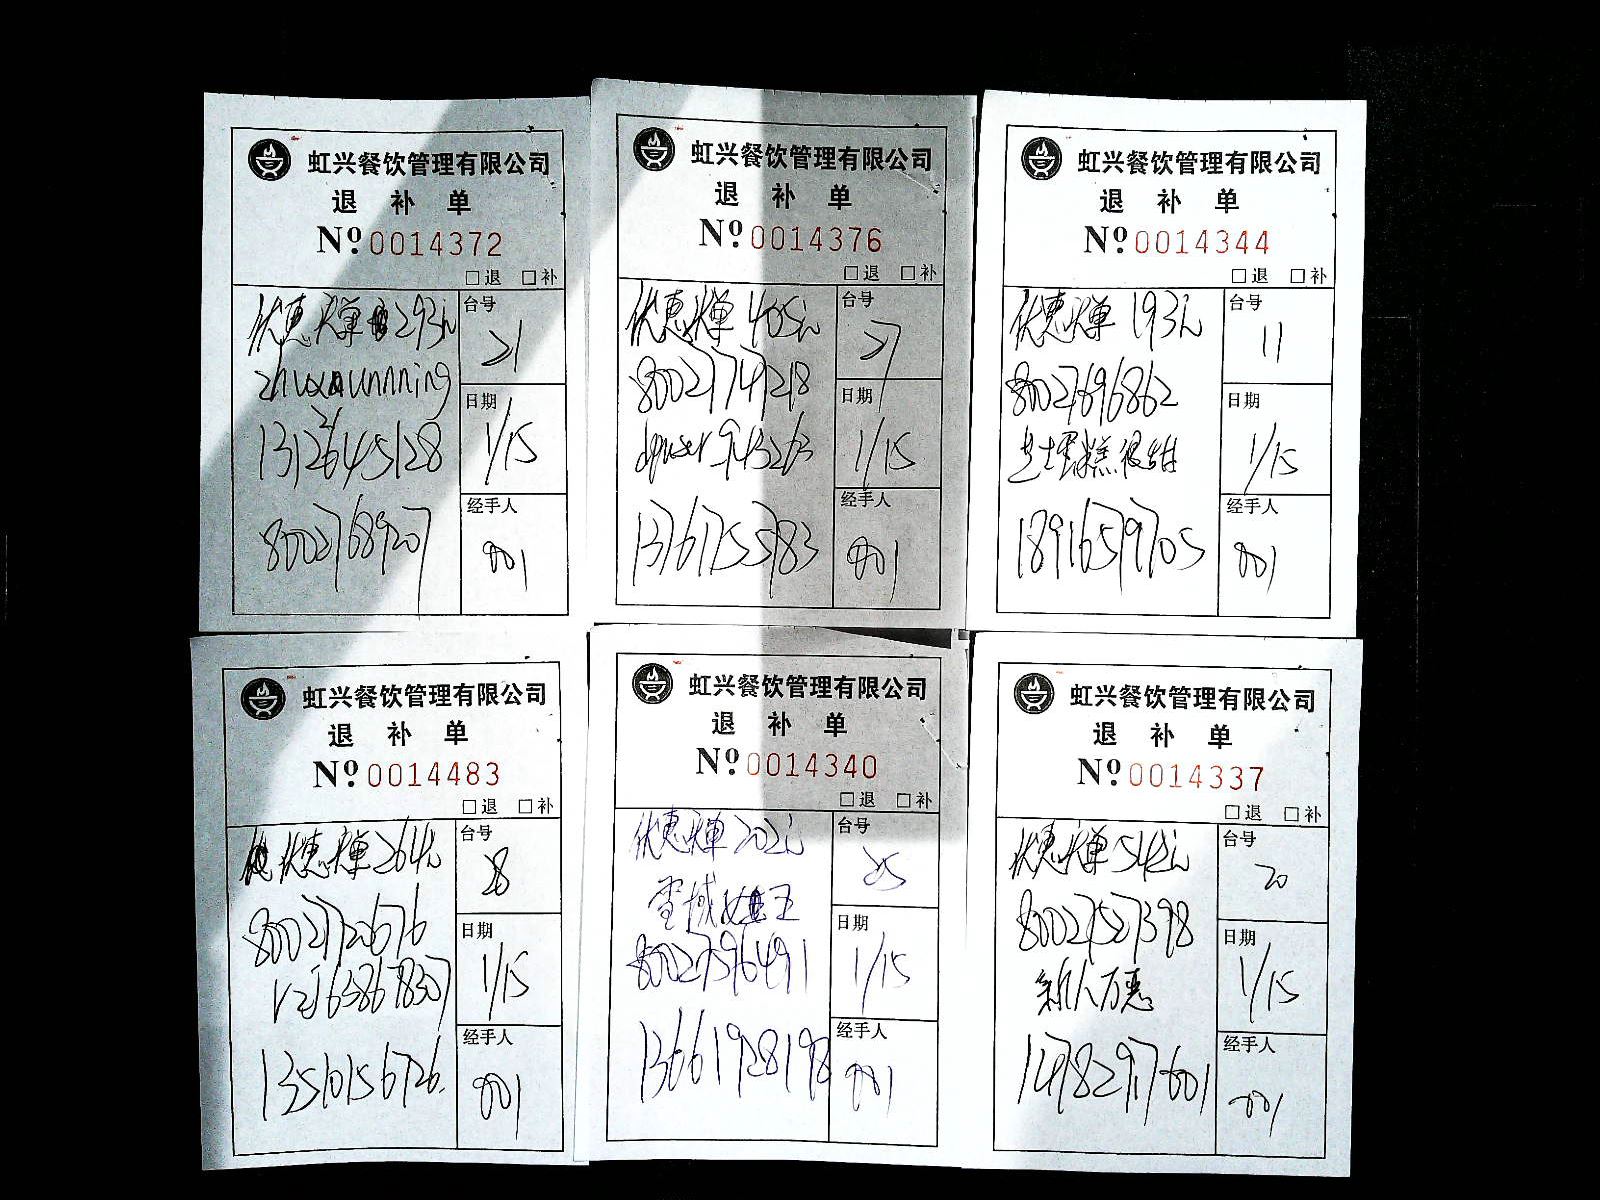 虹兴餐饮管理有限公司
退 补 单
Nº 0014372
□退 □补
优惠买单 293元
台号
21
zhuxaunnning
日期
1/15
13126445128
经手人
80027689207
001
虹兴餐饮管理有限公司
退 补 单
Nº 0014376
□退 □补
优惠买单 405元
台号
27
80027741218
日期
1/15
dpuser_943263
经手人
13761755783
001
虹兴餐饮管理有限公司
退 补 单
Nº 0014344
□退 □补
优惠买单 193元
台号
11
80027696862
日期
1/15
芝士蛋糕很甜
经手人
18916579705
001
虹兴餐饮管理有限公司
退 补 单
Nº 0014483
□退 □补
优惠买单 264元
台号
28
80027720676
日期
1/15
经手人
1350156726
001
虹兴餐饮管理有限公司
退 补 单
Nº 0014340
□退 □补
优惠买单 202元
台号
25
雪域女王
日期
1/15
80027596491
经手人
13661928198
001
虹兴餐饮管理有限公司
退 补 单
Nº 0014337
□退 □补
优惠买单 542元
台号
20
80027527398
日期
1/15
经手人
14782917601
001